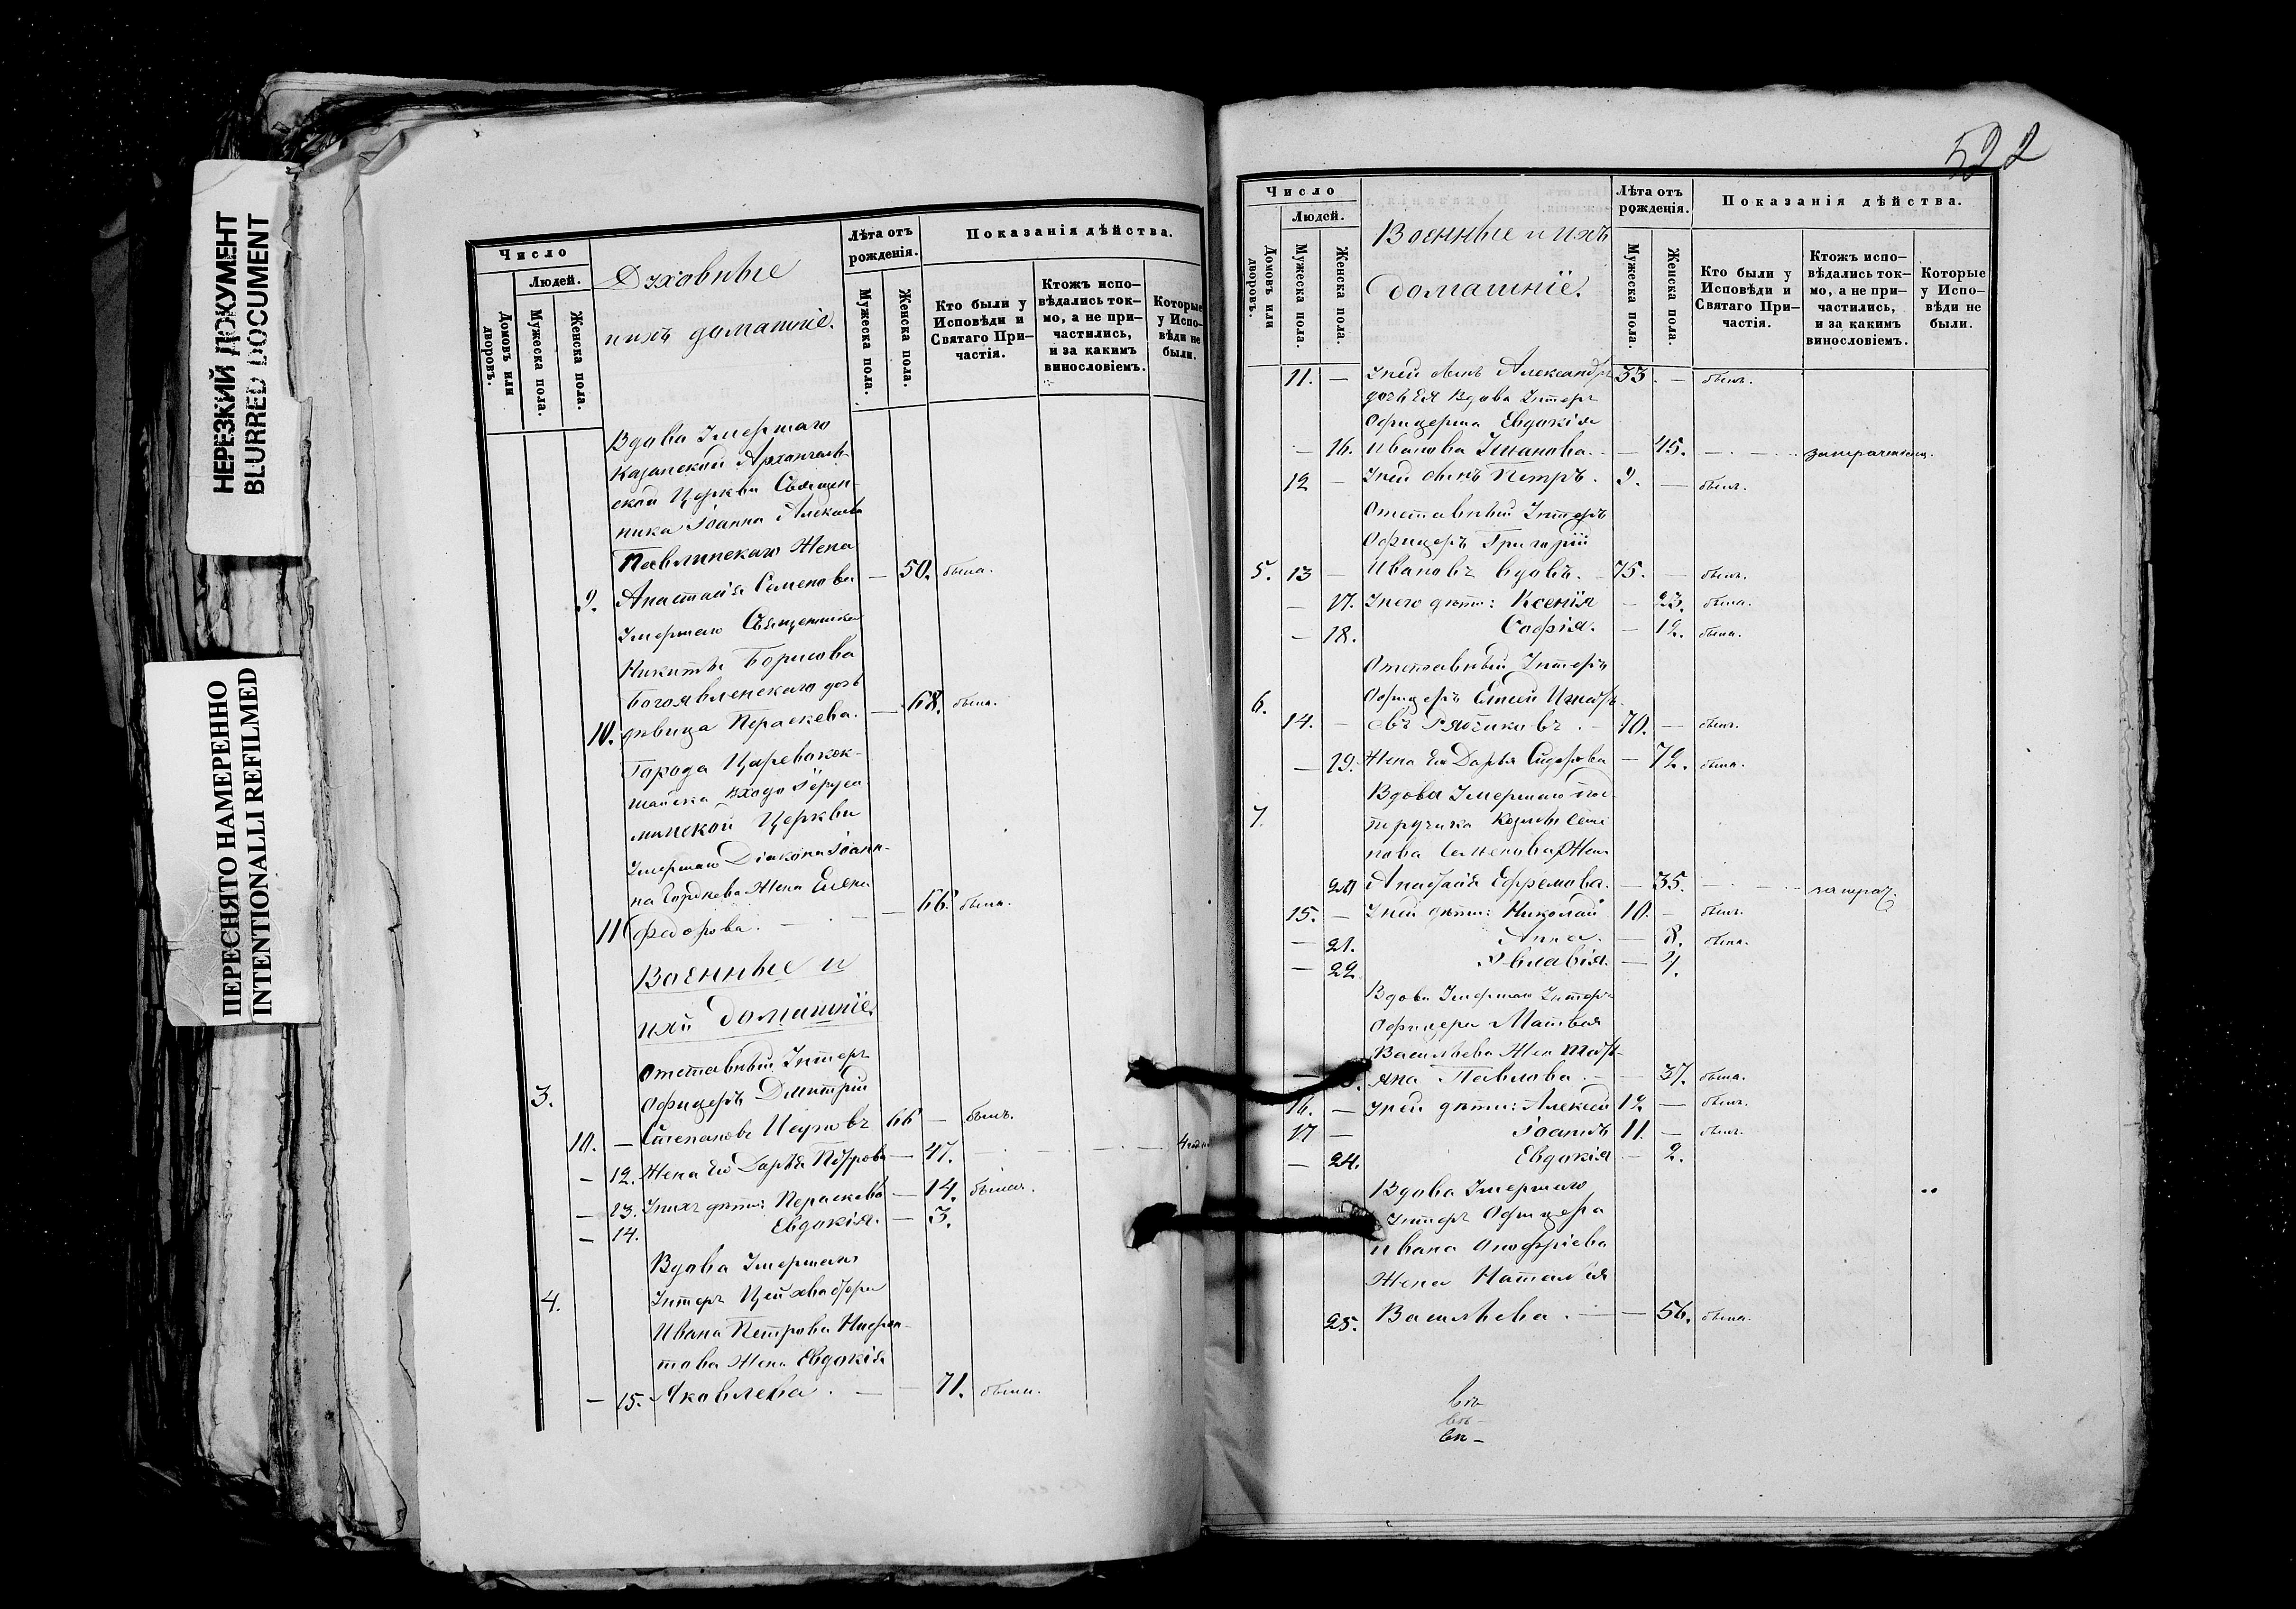 НЕРЕЗКИЙ ДОКУМЕНТ
BLURRED DOCUMENT
ПЕРЕСНЯТО НАМЕРЕННО
INTENTIONALLI REFILMED
Число
Людей.
Домовъ или дворовъ.
Мужеска пола.
Женска пола.
Духовные
и ихъ домашніе.
Лѣта отъ рожденія.
Мужеска пола.
Женска пола.
Показанія дѣйства.
Кто были у Исповѣди и Святаго При-частія.
Ктожъ испо-вѣдались ток-мо, а не при-частились, и за какимъ винословіемъ.
Которые у Испо-вѣди не были.
Вдова Умершаго
Казанской Архангель-
ской Церкви Священ-
ника Іоанна Алексѣева
Павлинскаго Жена
9. Анастасія Семенова — 50. была.
Умершаго Священника
Никиты Борисова
Богоявленскаго дочь
10. дѣвица Параскева. — 68. была.
Города Царевокок-
шайска Входо Іеруса
лимской Церкви
Умершаго Діакона Іоан-
на Жена Елена
11 Федорова. — 66. была.
Военные и
ихъ домашніе.
Отставный Унтеръ
3. Офицеръ Димитрій
10. — Степановъ 66 — былъ.
— 12. Жена его Дарья Петрова — 47.
— 13. У нихъ дѣти: Параскева — 14. была.
— 14. Евдокія. — 3.
Вдова Умершаго
4. Унтеръ Цейхвахтера
Ивана Петрова
Жена Евдокія
— 15. Яковлева. — 71. была.
522
Число
Людей.
Домовъ или дворовъ.
Мужеска пола.
Женска пола.
Военные и ихъ
домашніе.
Лѣта отъ рожденія.
Мужеска пола.
Женска пола.
Показанія дѣйства.
Кто были у Исповѣди и Святаго При-частія.
Ктожъ испо-вѣдались ток-мо, а не при-частились, и за какимъ винословіемъ.
Которые у Испо-вѣди не были.
11. — У ней сынъ Александръ 33. — былъ.
дочь Ея Вдова Унтеръ
Офицерша Евдокія
— 16. Иванова — 45.
12 — У ней сынъ Петръ. 9. — былъ.
Отставный Унтеръ
Офицеръ Григорій
5. 13 — Ивановъ вдовъ. 75. — былъ.
— 17. У него дѣти: Ксенія — 23. была.
— 18. Софія. — 12. была.
Отставный Унтеръ
6. Офицеръ
14. — 70. — былъ.
— 19. Жена Его Дарья Сидорова — 72. была.
Вдова Умершаго По-
7. ручика
Жена
20 Анастасія Ефремова. — 35.
15. — У ней дѣти: Николай 10. — былъ.
— 21. Анна. — 8. была.
— 22 — 4.
Вдова Умершаго Унтеръ
Офицера Матвея
Васильева Жена Тать-
яна Павлова. — 37. была.
16. — У ней дѣти: Алексей 12 — былъ.
17 — Іоаннъ 11. — былъ.
— 24. Евдокія — 2.
Вдова Умершаго
Унтеръ Офицера
Ивана Онофріева
Жена Наталья
25. Васильева. — 56. была.